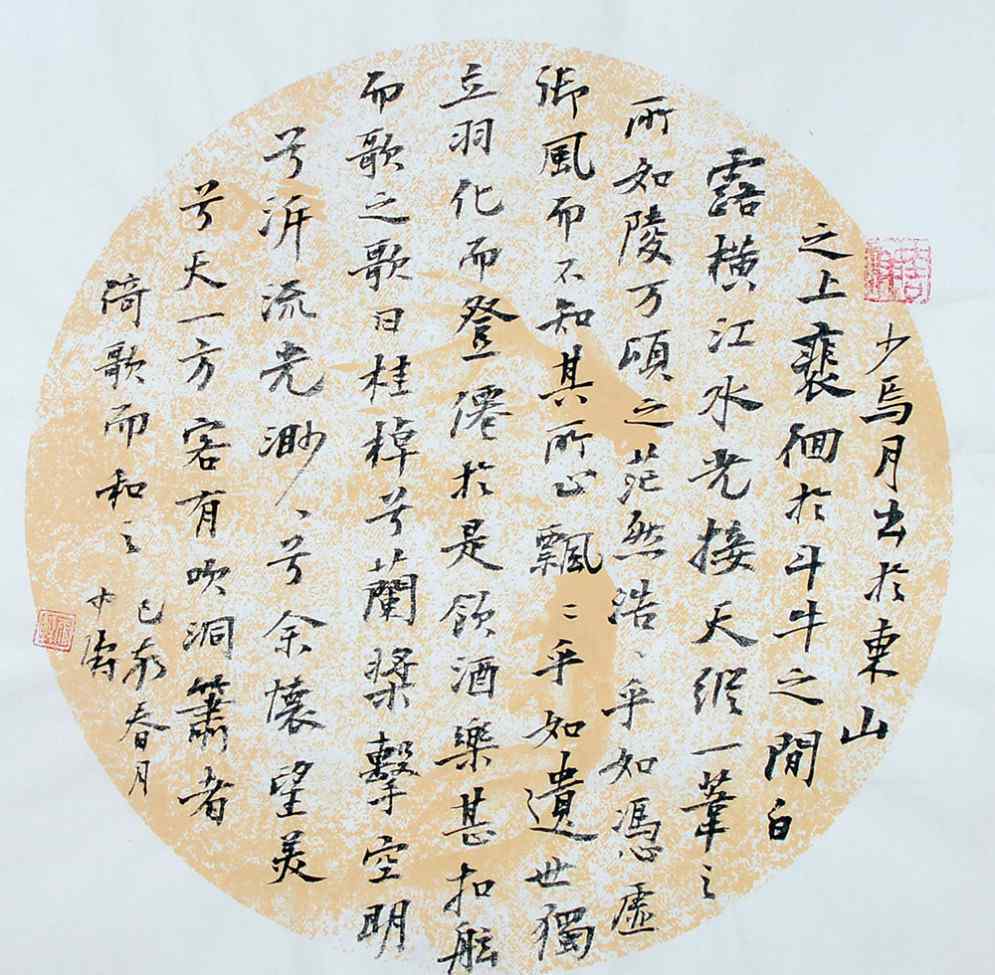 少焉月出於東山
之上裴佪於斗牛之間白
露橫江水光接天縱一葦之
所如陵万頃之茫然浩、乎如馮虛
御風而不知其所止飄〻乎如遺世獨
立羽化而登僊於是飲酒樂甚扣舷
而歌之歌曰桂棹兮蘭槳擊空明
兮泝流光渺、兮余懷望美
兮天一方客有吹洞簫者
倚歌而和之
己亥春月